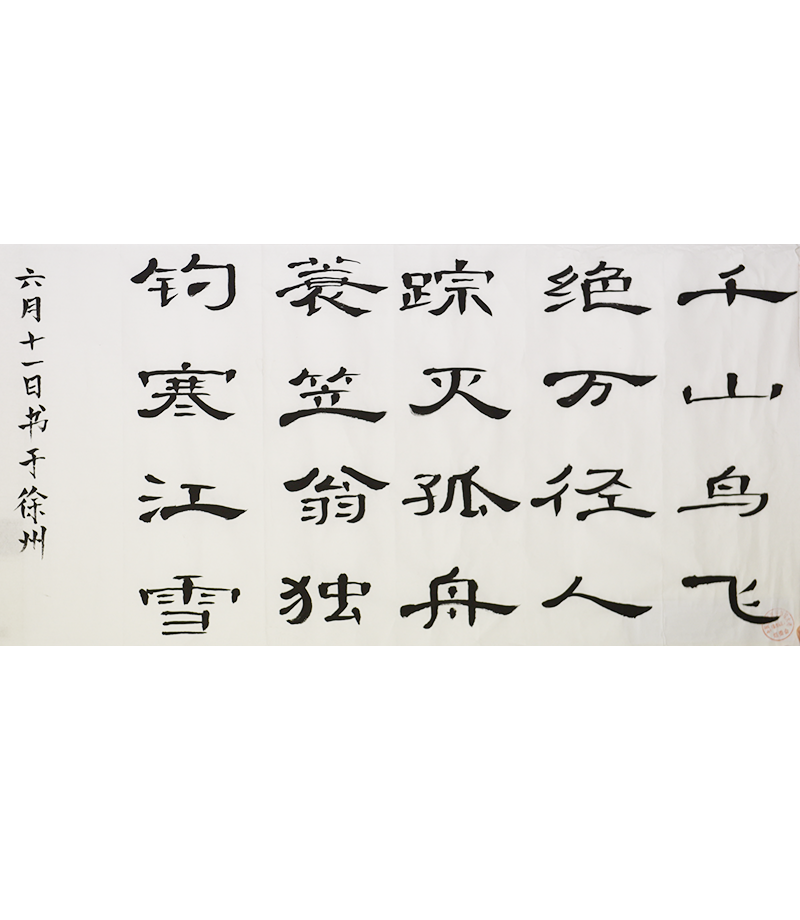 千山鸟飞
绝万径人
踪灭孤舟
蓑笠翁独
钓寒江雪
六月十一日书于徐州